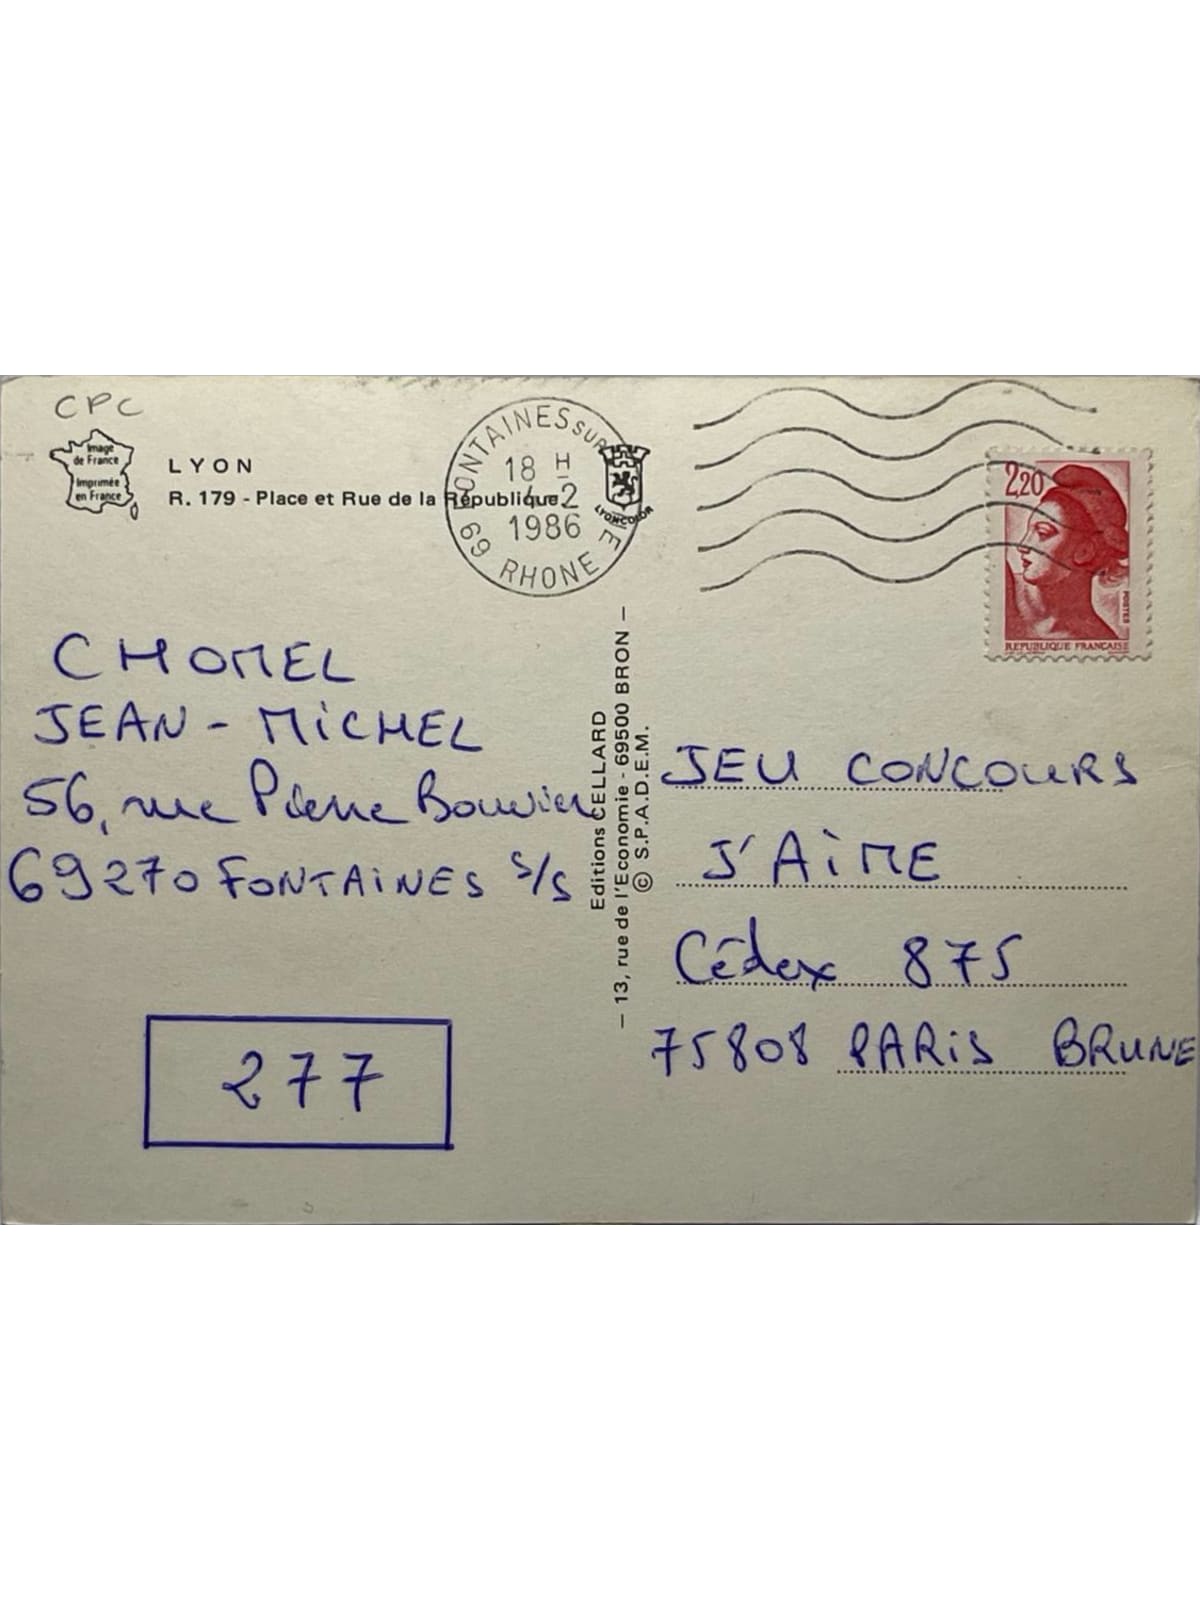 CPC
Image
de France
Imprimée
en France
LYON
R. 179 - Place et Rue de la République
FONTAINES SUR
18 H
4-2
1986
69 RHONE
LYONCOLOR
2,20
POSTES
REPUBLIQUE FRANÇAISE
CHOMEL
JEAN-MICHEL
56, rue Pierre Bouvier
69270 FONTAINES s/s
277
Editions CELLARD
– 13, rue de l'Economie - 69500 BRON –
© S.P.A.D.E.M.
JEU CONCOURS
J'AIME
Cédex 875
75808 PARIS BRUNE